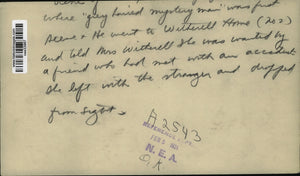 where "grey haired mystery man" was first
seen. He went to Witherell Home (202)
and told Mrs Witherell she was wanted by
a friend who had met with an accident
She left with the stranger and dropped
from sight.
A2543
REFERENCE DEPT.
N. E. A.
O.K.